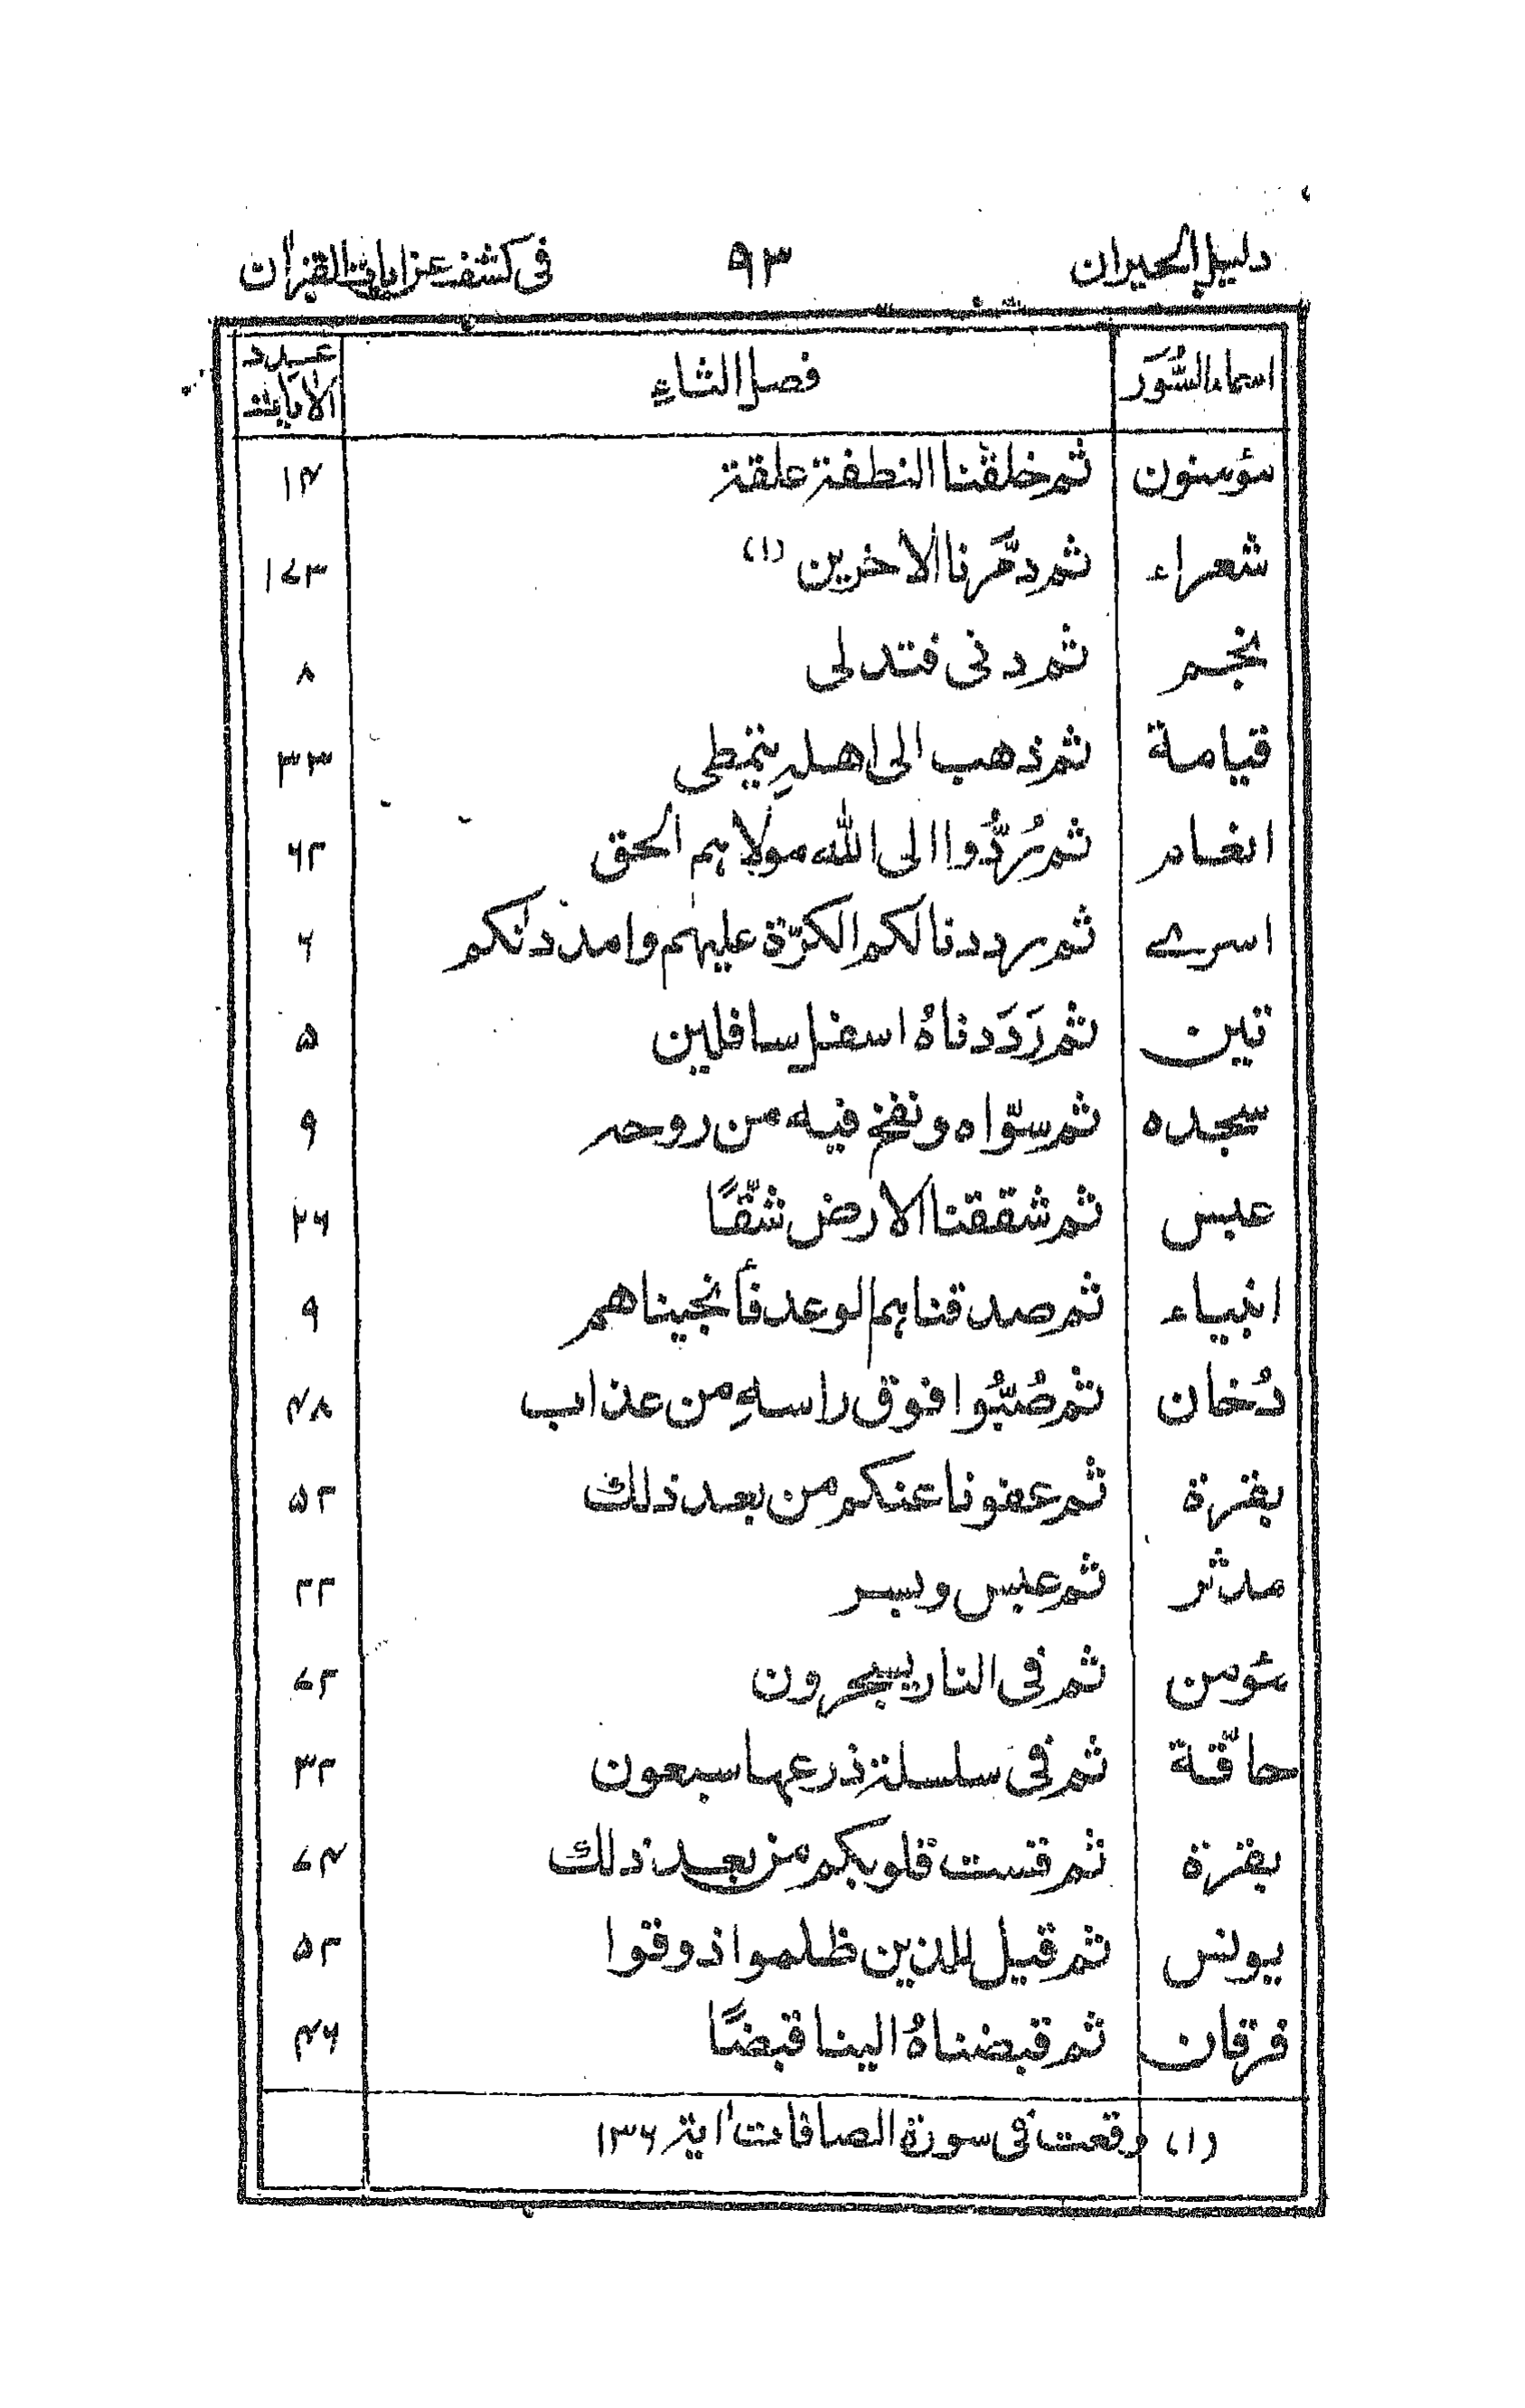 دليل الحيران ٩٣ فى كشف عن اٰيات القرٰان
اسماء السُّوَر فصل الثاءِ عدد الاٰيات
مؤمنون ثم خلقنا النطفة علقة ۱۴
شعراء ثم دمَّرنا الاخرين (۱) ۱۷۳
نجم ثم دنى فتدلى ۸
قيامة ثم ذهب الى اهلهِ يتمطى ۳۳
انعام ثم رُدُّوا الى الله مولاہم الحق ۶۲
اسرے ثم رددنا لكم الكرّة عليہم وامددنٰكم ۶
تين ثم رَدَدناهُ اسفل سافلين ۵
سجده ثم سوّاه ونفخ فيه من روحه ۹
عبس ثم شققنا الارض شقًّا ۲۶
انبياء ثم صدقناہم الوعد فأنجيناهم ۹
دُخان ثم صُبُّوا فوق راسهِ من عذاب ۴۸
بقرة ثم عفونا عنكم من بعد ذلك ۵۲
مدثر ثم عبس وبسر ۲۲
مؤمن ثم فى النار يسجرون ۷۲
حاقّة ثم فى سلسلة ذرعها سبعون ۳۲
بقرة ثم قست قلوبكم من بعد ذلك ۷۴
يونس ثم قيل للذين ظلموا ذوقوا ۵۲
فرقان ثم قبضناهُ الينا قبضًا ۴۶
(۱) وقعت فى سورة الصافات اٰية ۱۳۶